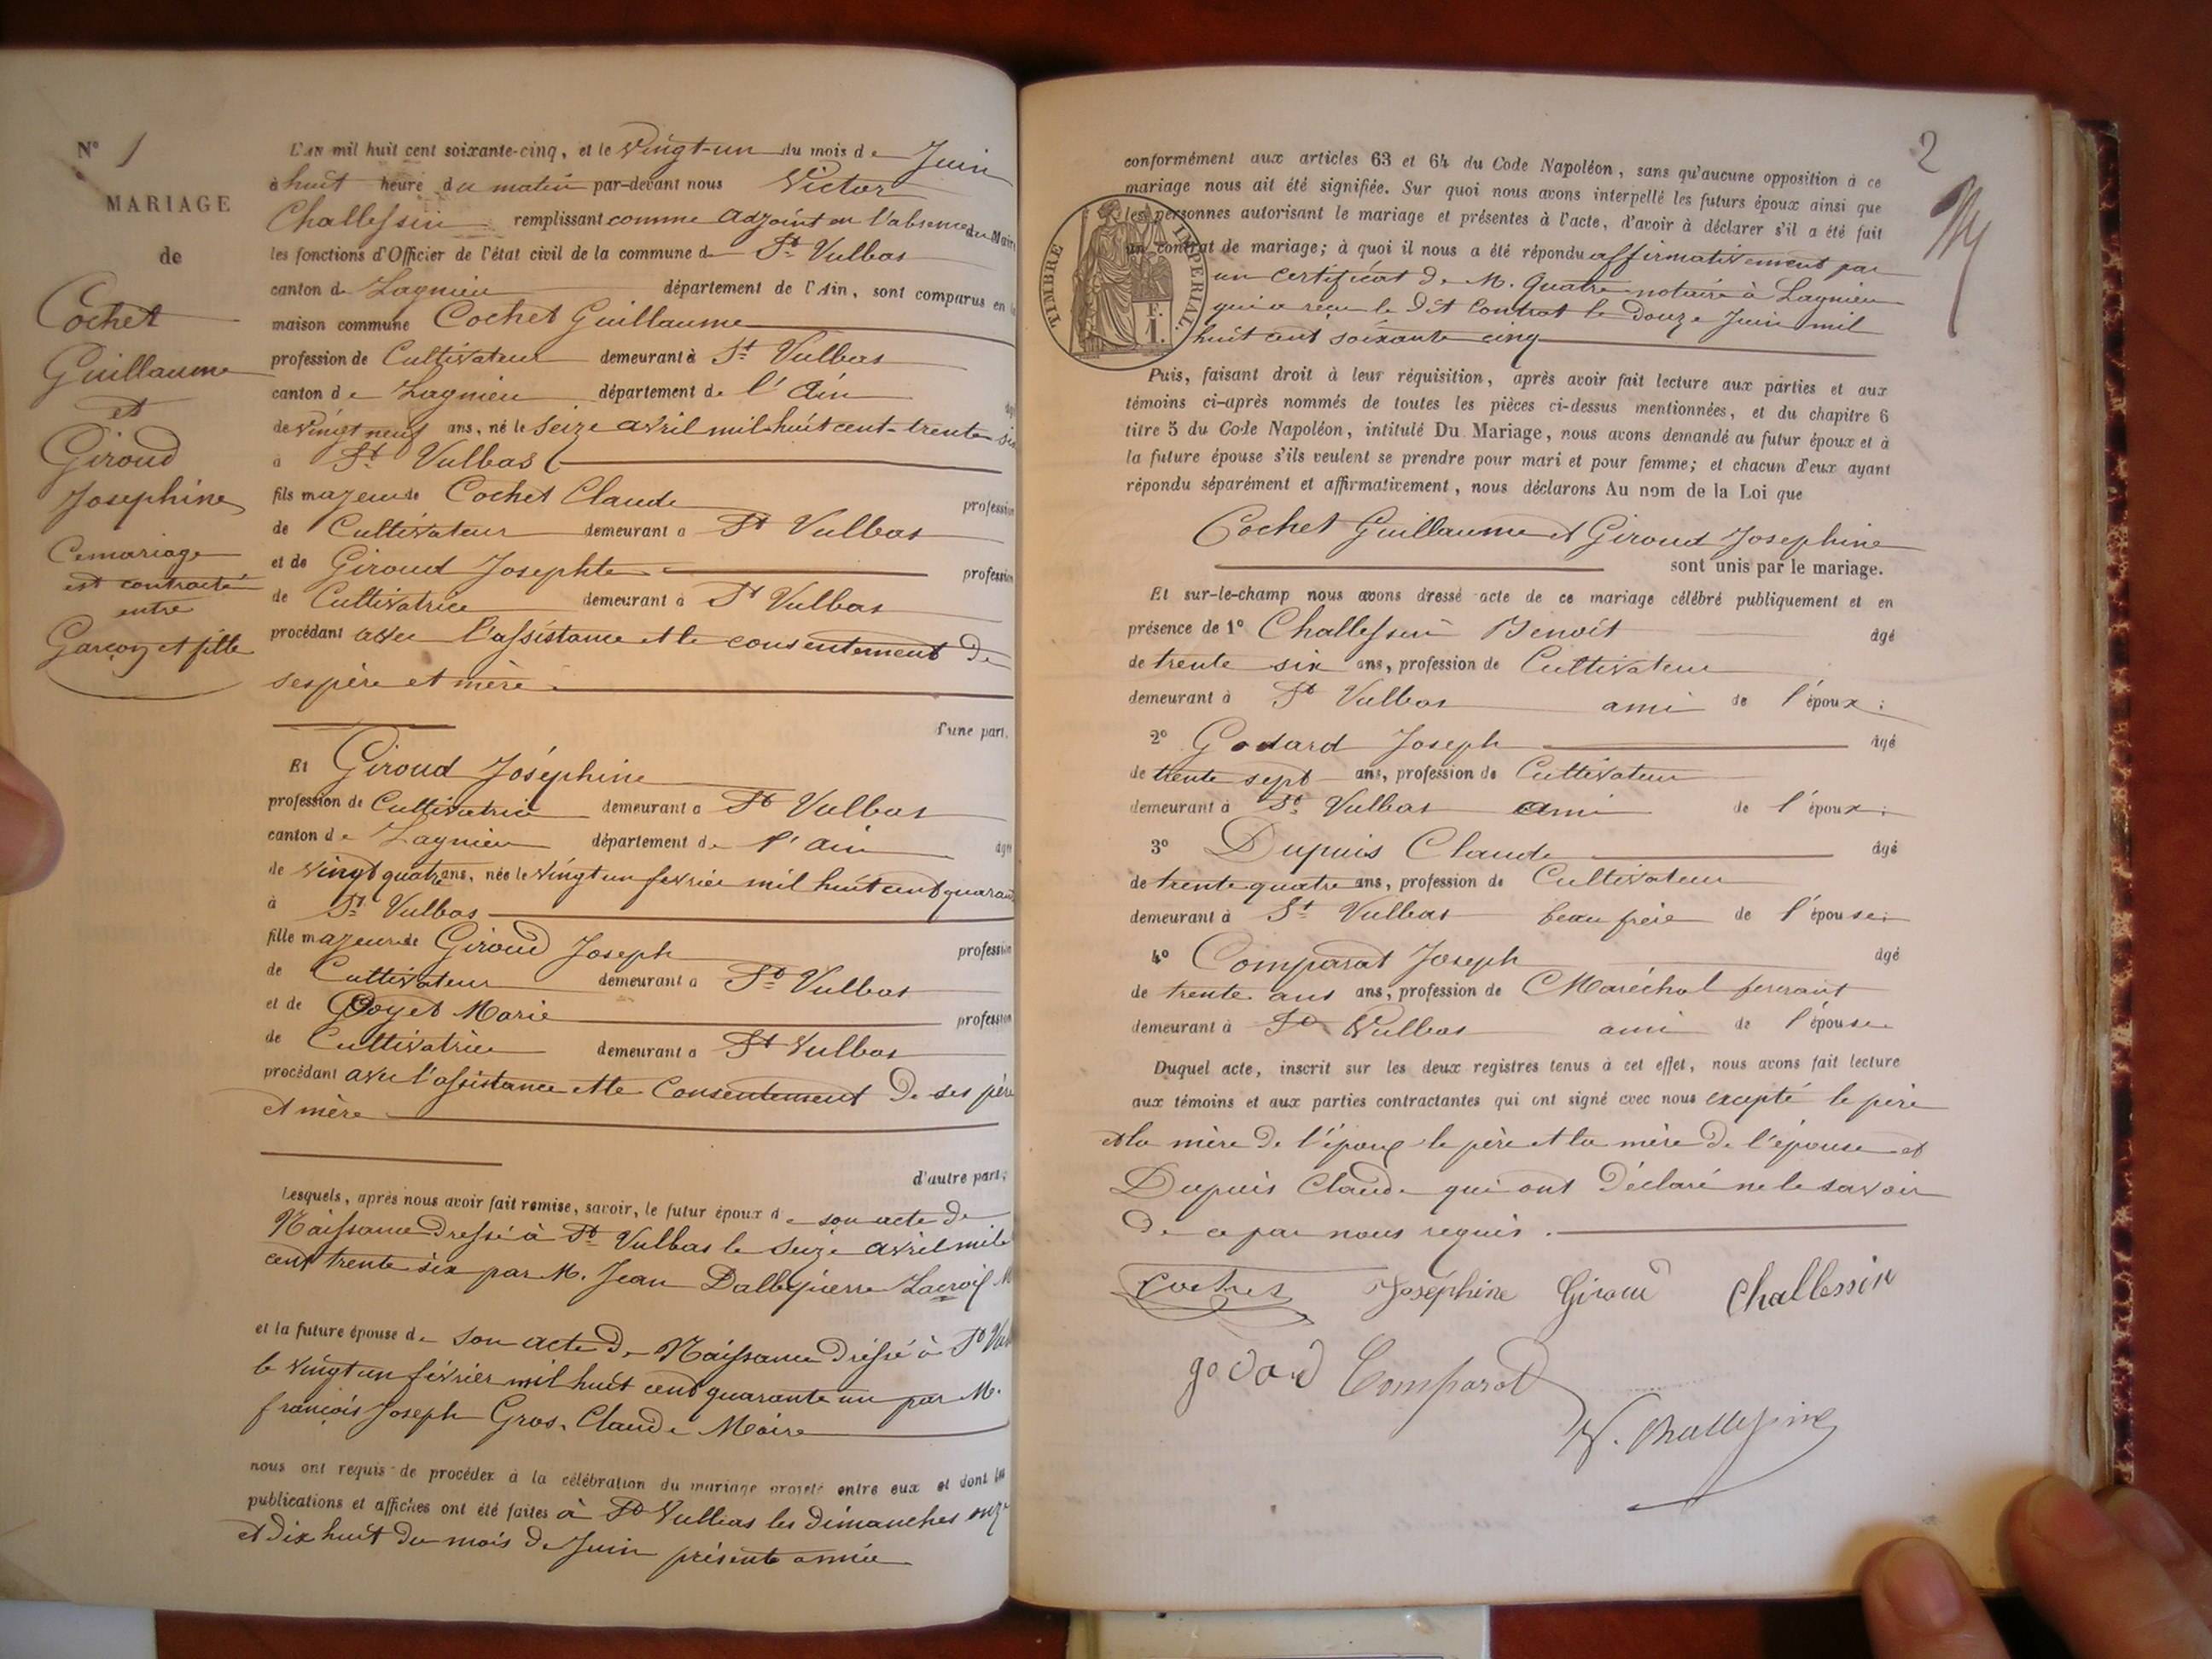 N° 1
MARIAGE
de
Cochet
Guillaume
et
Giroud
Josephine
Ce mariage
est contracté
entre
Garçon et fille
L'AN mil huit cent soixante-cinq, et le vingt-un du mois de Juin
à huit heure du matin par-devant nous Victor
Challessin remplissant comme adjoint en l'absence du Maire
les fonctions d'Officier de l'état civil de la commune de St Vulbas
canton de Lagnieu département de l'Ain, sont comparus en la
maison commune Cochet Guillaume
profession de Cultivateur demeurant à St Vulbas
canton de Lagnieu département de l'Ain
de vingt neuf ans, né le seize avril mil-huit cent-trente six
à St Vulbas
fils majeur de Cochet Claude profession
de Cultivateur demeurant à St Vulbas
et de Giroud Josephte profession
de Cultivatrice demeurant à St Vulbas
procédant avec l'assistance et le consentement de
ses père et mère
d'une part.
Et Giroud Joséphine
profession de Cultivatrice demeurant à St Vulbas
canton de Lagnieu département de l'Ain agée
de vingt quatre ans, née le vingt un fevrier mil huit cent quarante
à St Vulbas
fille majeure de Giroud Joseph profession
de Cultivateur demeurant à St Vulbas
et de Goyet Marie profession
de Cultivatrice demeurant à St Vulbas
procédant avec l'assistance et le Consentement de ses père
et mère
d'autre part;
Lesquels, après nous avoir fait remise, savoir, le futur époux de son acte de
Naissance dressé à St Vulbas le seize avril mil
cent trente six par M. Jean Lacroix M
et la future épouse de son acte de Naissance dressé à St Vul
le vingt un février mil huit cent quarante un par M.
françois Joseph Gros, Claude Maire
nous ont requis de procéder à la célébration du mariage projeté entre eux et dont les
publications et affiches ont été faites à St Vulbas les dimanches onze
et dix huit du mois de Juin présente année
2
conformément aux articles 63 et 64 du Code Napoléon, sans qu'aucune opposition à ce
mariage nous ait été signifiée. Sur quoi nous avons interpellé les futurs époux ainsi que
les personnes autorisant le mariage et présentes à l'acte, d'avoir à déclarer s'il a été fait
un contrat de mariage; à quoi il nous a été répondu affirmativement par
un certificat de M. Quatre notaire à Lagnieu
qui a reçu le dit Contrat le douze Juin mil
huit cent soixante cinq
TIMBRE IMPERIAL.
1 F.
Puis, faisant droit à leur réquisition, après avoir fait lecture aux parties et aux
témoins ci-après nommés de toutes les pièces ci-dessus mentionnées, et du chapitre 6
titre 5 du Code Napoléon, intitulé Du Mariage, nous avons demandé au futur époux et à
la future épouse s'ils veulent se prendre pour mari et pour femme; et chacun d'eux ayant
répondu séparément et affirmativement, nous déclarons Au nom de la Loi que
Cochet Guillaume et Giroud Josephine
sont unis par le mariage.
Et sur-le-champ nous avons dressé acte de ce mariage célébré publiquement et en
présence de 1° Challessin Benoît âgé
de trente six ans, profession de Cultivateur
demeurant à St Vulbas ami de l'époux;
2° Godard Joseph âgé
de trente sept ans, profession de Cultivateur
demeurant à St Vulbas ami de l'époux;
3° Dupuis Claude âgé
de trente quatre ans, profession de Cultivateur
demeurant à St Vulbas beau frère de l'épouse;
4° Comparat Joseph âgé
de trente ans ans, profession de Maréchal ferrant
demeurant à St Vulbas ami de l'épouse
Duquel acte, inscrit sur les deux registres tenus à cet effet, nous avons fait lecture
aux témoins et aux parties contractantes qui ont signé avec nous excepté le père
et la mère de l'époux le père et la mère de l'épouse et
Dupuis Claude qui ont déclaré ne le savoir
de ce par nous requis.
Cochet Joséphine Giroud Challessin
godard Comparat
V. Challessin